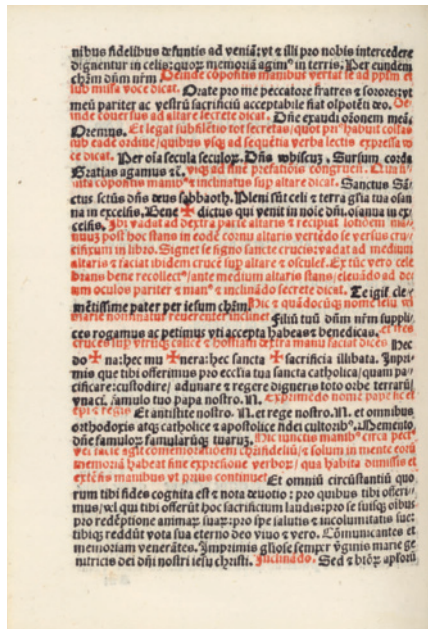 nibus fidelibus defunctis ad veniā: vt & illi pro nobis intercedere
dignentur in celis: quoꝝ memoriā agimꝰ in terris: Per eundem
chr̄m dn̄m nr̄m Deinde copositis manibus vertat se ad ppl̄m et
sub missa voce dicat. Orate pro me peccatore fratres & sorores: vt
meū pariter ac vestrū sacrificiū acceptabile fiat olpotēti deo. De
inde couersus ad altare secrete dicat. Dn̄e exaudi ozonem meā.
Oremus. Et legat sub silētio tot secretas/ quot priꝰ habuit collas
sub eadē ordine/ quibus vsqꝫ ad sequētia verba lectis expressa vo
ce dicat. Per oīa secula seculoꝝ. Dn̄s vobiscuꝫ. Sursum corda
Gratias agamus &c̄. vsqꝫ ad fine prefationis congruen.
nita copositis manibꝰ & inclinatus sup altare dicat. Sanctus Sā
ctus sctūs dn̄s deus sabbaoth. Pleni sūt celi & terra gl̄ia tua osan
na in excelsis. Bene ✠ dictus qui venit in noīe dn̄i. osanna in ex
celsis. Ibi vadat ad dextra parte altaris & recipiat
post hoc stans in eodē cornu altaris vertēdo se versus cru
cifixum in libro. Signet se signo sancte crucis: vadat ad medium
altaris & faciat ibidem crucē sup altare & osculet. Ex tūc vero cele
brans bene recollectꝰ/ ante medium altaris stans/ eleuādo ad
um oculos pariter & manꝰ & inclinādo secrete dicat. Te igit̄ cle
mētissime pater per iesum chr̄m Hic & quādocūqꝫ nomē iesu
nominatur reuerenter inclinet Filiū tuū dn̄m nr̄m suppli
ces rogamus ac petimus vti accepta habeas & benedicas. et
cruces sup vtrūqꝫ calicē & hostiam dextra manu faciat dicēs Hec
do ✠ na: hec mu ✠ nera: hec sancta ✠ sacrificia illibata. Inpri
mis que tibi offerimus pro eccl̄ia tua sancta catholica/ quam pa
cificare: custodire/ adunare & regere digneris toto orbe terrarū/
vna cū. famulo tuo papa nostro. N. Exprimēdo nomē pape hic et
ep̄i & regis Et antistite nostro. N. et rege nostro. N. et omnibus
orthodoxis atqꝫ catholice & apostolice fidei cultoribꝰ. Memento.
dn̄e famuloꝝ famularūqꝫ tuaruꝫ. Hic iunctis manibꝰ circa pect
facie agit comemorationem chr̄i fideliū/ & solum in mente eorū
memoriā habeat sine expresione verboꝝ/ qua habita dimissis et
extēsis manibus vt prius continuet Et omniū circūstantiū quo
rum tibi fides cognita est & nota deuotio: pro quibus tibi offeri-
mus/ vel qui tibi offerūt hoc sacrificium laudis: pro se suisqꝫ oībus
pro redēptione animaꝝ suaꝝ: pro spe salutis & incolumitatis sue:
tibiqꝫ reddūt vota sua eterno deo viuo & vero. Cōmunicantes et
memoriam venerātes. Imprimis gl̄iose semper v̄ginis marie ge
nitricis dei dn̄i nostri iesu christi. Inclinādo. Sed & btōꝝ apl̄orū